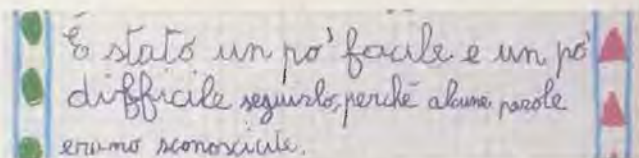 È stato un po' facile e un po'
difficile seguirlo, perché alcune parole
erano sconosciute.